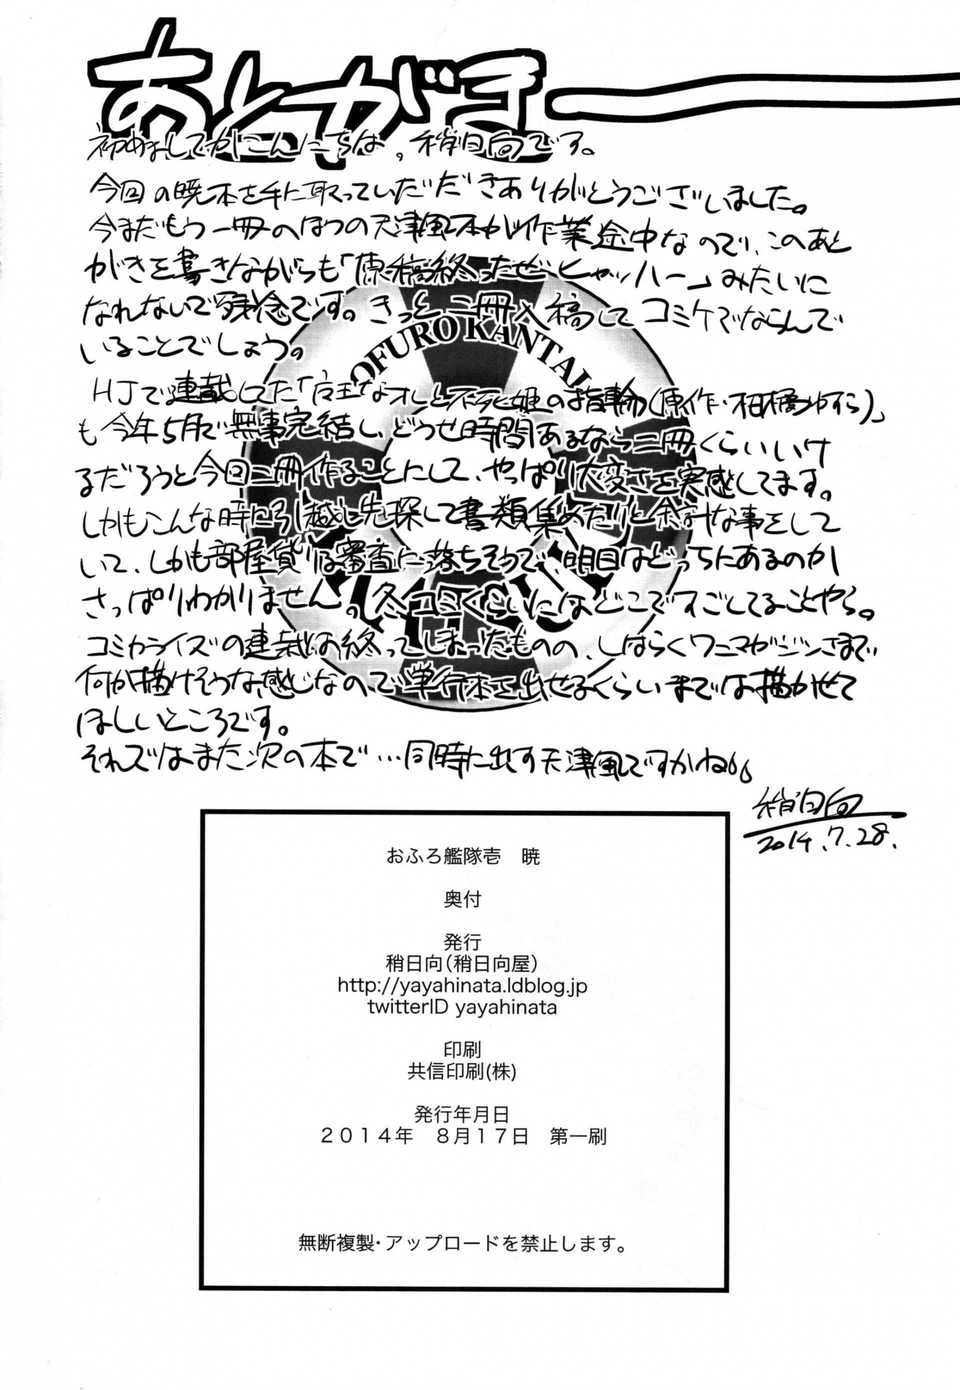 あとがきー
初めましてかこんにちは、稍日向です。
今回の暁本を手に取っていただだきありがとうございました。
今まだもう一冊のほうの天津風本が作業途中なので、このあと
がきを書きながらも「原稿終ったぜヒャッハー」みたいに
なれないで残念です。きっと二冊入稿してコミケでならんで
いることでしょう。
HJで連載してた「店主なオレと不死姫の指輪(原作・柑橘ゆすら)」
も今年5月で無事完結し、どうせ時間あるなら二冊くらいいけ
るだろうと今回二冊作ることにして、やっぱり大変さを実感してます。
しかもこんな時に引越し先探して書類集めたりと余計な事をして
いて、しかも部屋貸りる審査に落ちそうで、明日はどっちにあるのか
さっぱりわかりません。冬コミくらいにはどこですごしてることやら。
コミカライズの連載は終ってしまったものの、しばらくワニマガジンさまで
何か描けそうな感じなので単行本で出せるくらいまでは描かせて
ほしいところです。
それではまた次の本で…同時に出す天津風ですかね。
稍日向
2014.7.28.
OFURO KANTAI
おふろ艦隊壱　暁
奥付
発行
稍日向(稍日向屋)
http://yayahinata.ldblog.jp
twitterID yayahinata
印刷
共信印刷(株)
発行年月日
２０１４年　８月１７日　第一刷
無断複製・アップロードを禁止します。